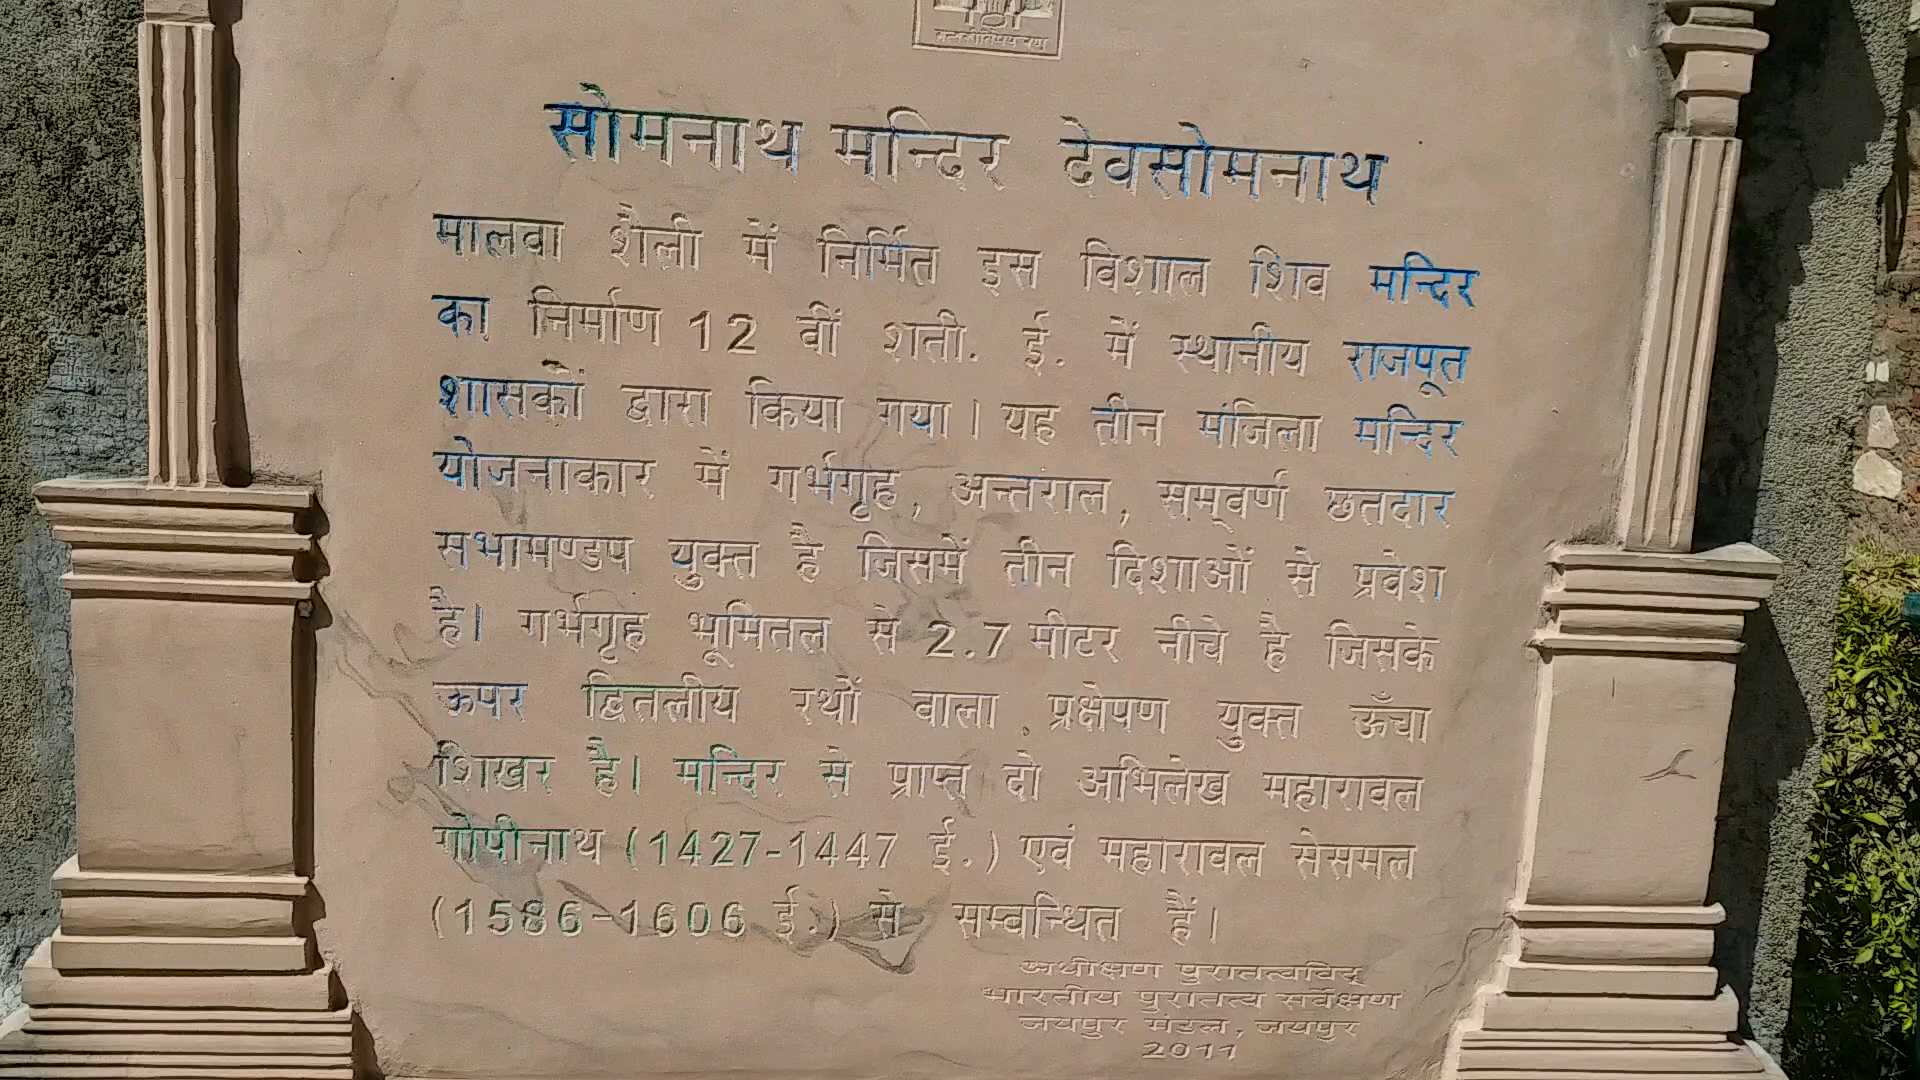 सोमनाथ मन्दिर देवसोमनाथ
मालवा शैली में निर्मित इस विशाल शिव मन्दिर
का निर्माण 12 वीं शती. ई. में स्थानीय राजपूत
शासकों द्वारा किया गया। यह तीन मंजिला मन्दिर
योजनाकार में गर्भगृह, अन्तराल, सम्वर्ण छतदार
सभामण्डप युक्त है जिसमें तीन दिशाओं से प्रवेश
है। गर्भगृह भूमितल से 2.7 मीटर नीचे है जिसके
ऊपर द्वितलीय रथों वाला प्रक्षेपण युक्त ऊँचा
शिखर है। मन्दिर से प्राप्त दो अभिलेख महारावल
गोपीनाथ (1427-1447 ई.) एवं महारावल सेसमल
(1586-1606 ई.) से सम्बन्धित हैं।
अधीक्षण पुरातत्वविद्
भारतीय पुरातत्व सर्वेक्षण
जयपुर मंडल, जयपुर
2011